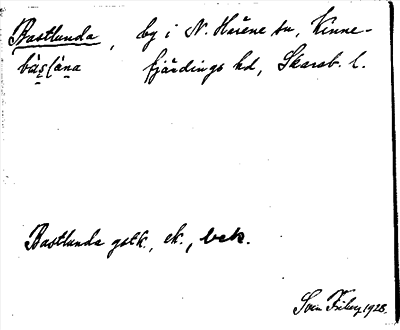 Bastlunda, by i N. Härene sn, Kinne-
fjärdings hd, Skarab. l.
Bastlunda gstk., ek., bek.
Sven Friberg 1928.